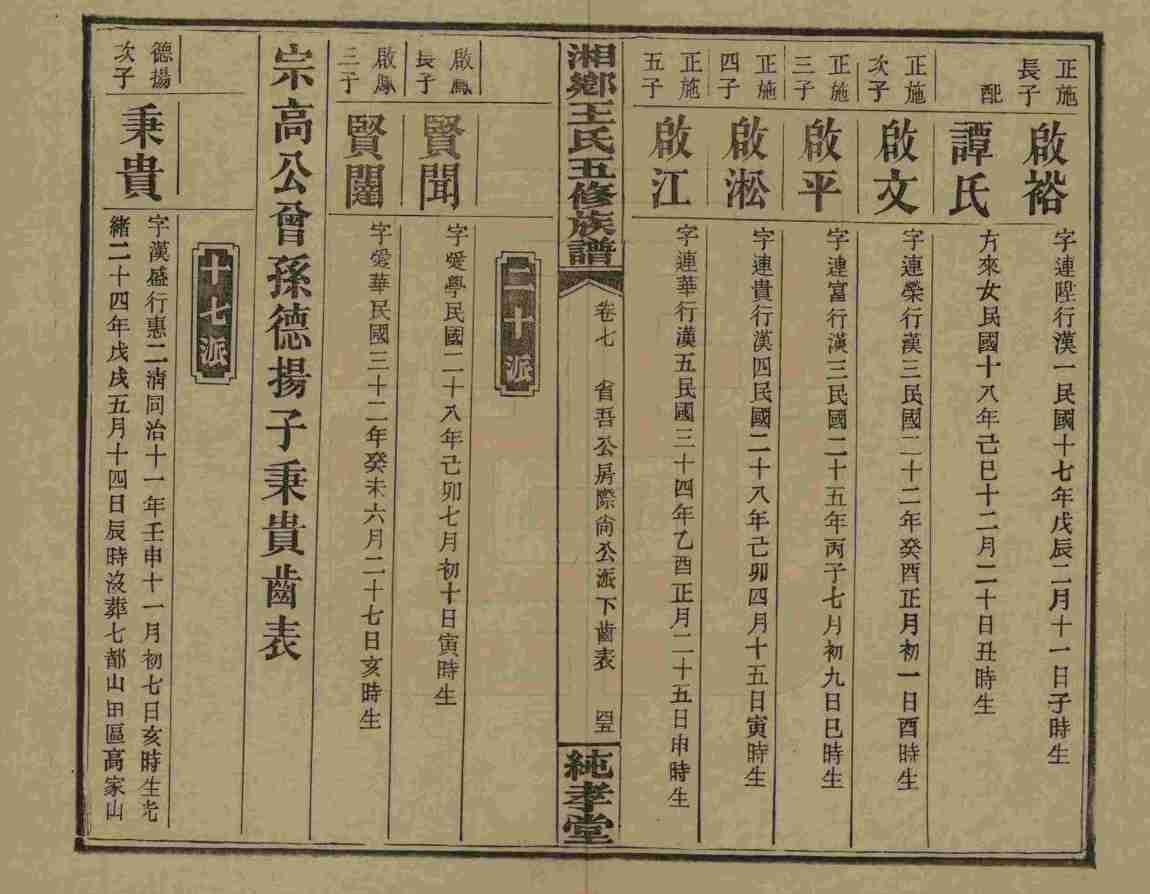 正施長子
啟裕
字連陞行漢一民國十七年戊辰二月十一日子時生
配
譚氏
方來女民國十八年己巳十二月二十日丑時生
正施次子
啟文
字連榮行漢三民國二十二年癸酉正月初一日酉時生
正施三子
啟平
字連富行漢三民國二十五年丙子七月初九日巳時生
正施四子
啟淞
字連貴行漢四民國二十八年己卯四月十五日寅時生
正施五子
啟江
字連華行漢五民國三十四年乙酉正月二十五日申時生
湘鄉王氏五修族譜
卷七 省吾公房際尚公派下齒表
純孝堂
二十派
啟鳳長子
賢聞
字愛學民國二十八年己卯七月初十日寅時生
啟鳳三子
賢闥
字愛華民國三十二年癸未六月二十七日亥時生
崇高公曾孫德揚子秉貴齒表
十七派
德揚次子
秉貴
字漢盛行惠二清同治十一年壬申十一月初七日亥時生光
緒二十四年戊戌五月十四日辰時沒葬七都山田區高家山